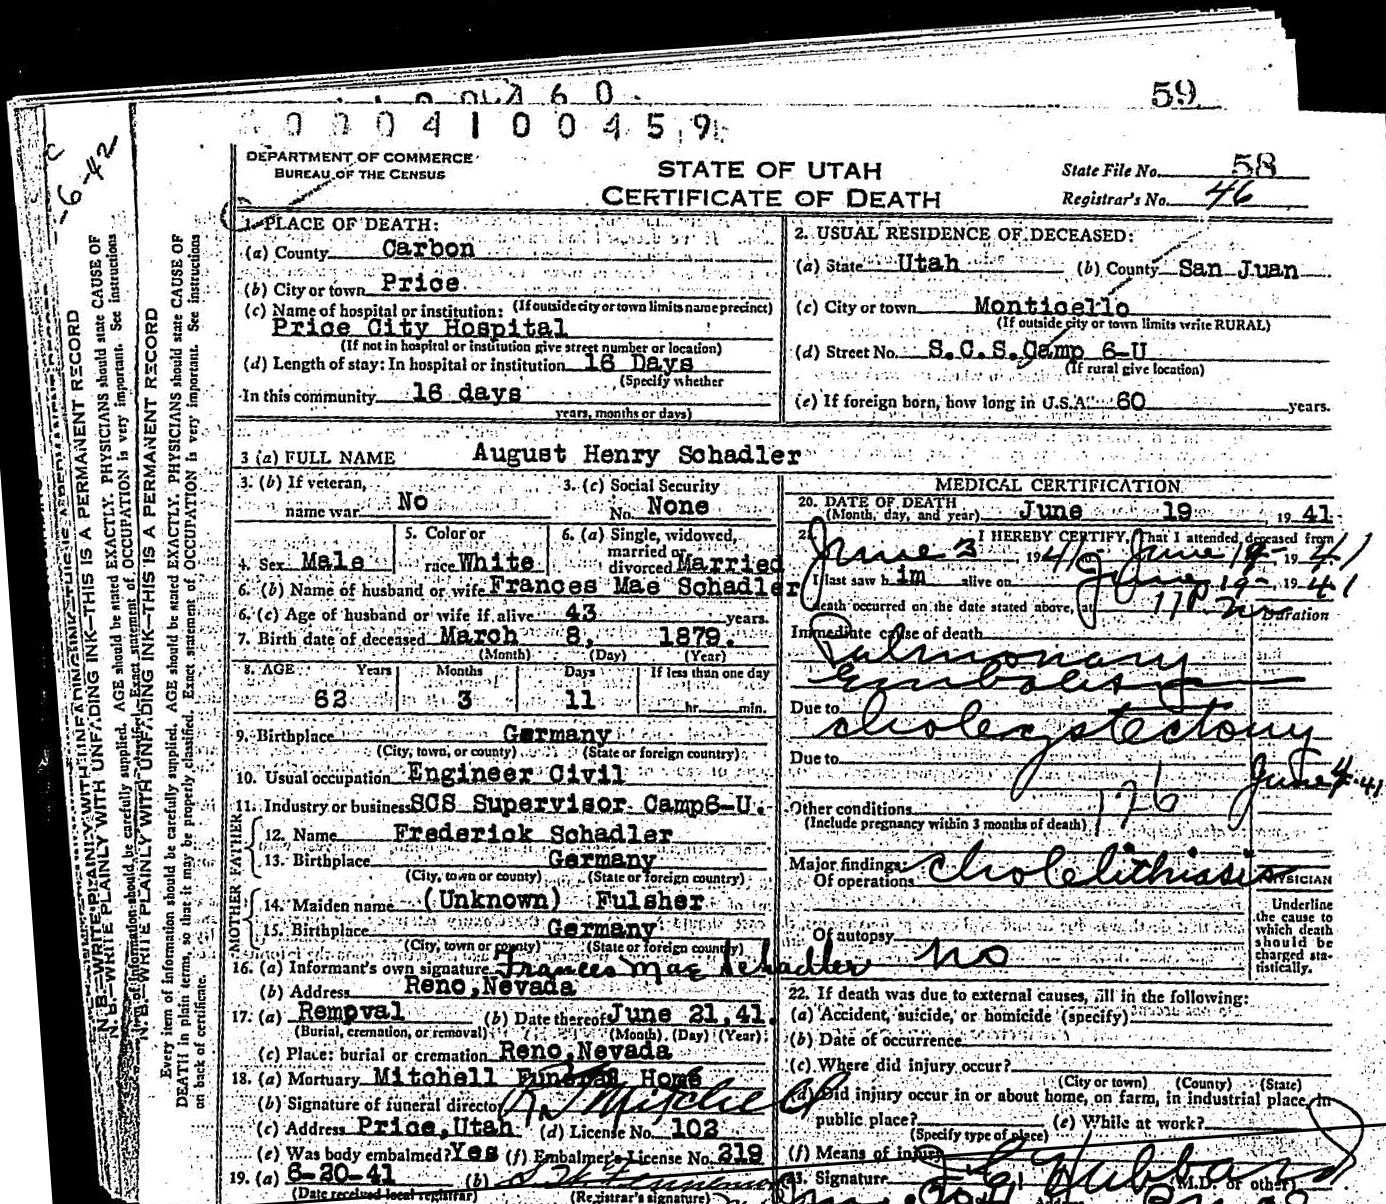 59
0 0 0 4 1 0 0 4 5 9
-6-42
DEPARTMENT OF COMMERCE
BUREAU OF THE CENSUS
STATE OF UTAH
CERTIFICATE OF DEATH
State File No. 58
Registrar's No. 46
1. PLACE OF DEATH:
(a) County Carbon
(b) City or town Price
(If outside city or town limits name precinct)
(c) Name of hospital or institution:
Price City Hospital
(If not in hospital or institution give street number or location)
(d) Length of stay: In hospital or institution 16 Days
(Specify whether
In this community 16 days
years, months or days)
2. USUAL RESIDENCE OF DECEASED:
(a) State Utah (b) County San Juan
(c) City or town Monticello
(If outside city or town limits write RURAL)
(d) Street No. S.C.S. Camp 6-U
(If rural give location)
(e) If foreign born, how long in U.S.A. 60 years.
3 (a) FULL NAME August Henry Schadler
3. (b) If veteran, name war No
3. (c) Social Security No. None
4. Sex Male
5. Color or race White
6. (a) Single, widowed, married or divorced Married
6. (b) Name of husband or wife Frances Mae Schadler
6. (c) Age of husband or wife if alive 43 years.
7. Birth date of deceased March 8, 1879.
(Month) (Day) (Year)
8. AGE Years Months Days If less than one day
62 3 11 hr. min.
9. Birthplace Germany
(City, town, or county) (State or foreign country)
10. Usual occupation Engineer Civil
11. Industry or business SCS Supervisor Camp6-U.
FATHER
12. Name Frederick Schadler
13. Birthplace Germany
(City, town or county) (State or foreign country)
MOTHER
14. Maiden name (Unknown) Fulsher
15. Birthplace Germany
(City, town or county) (State or foreign country)
16. (a) Informant's own signature Frances Mae Schadler
(b) Address Reno, Nevada
17. (a) Removal (b) Date thereof June 21, 41.
(Burial, cremation, or removal) (Month) (Day) (Year)
(c) Place: burial or cremation Reno, Nevada
18. (a) Mortuary Mitchell Funeral Home
(b) Signature of funeral director R J Mitchell
(c) Address Price, Utah (d) License No. 102
(e) Was body embalmed? Yes (f) Embalmer's License No. 219
19. (a) 6-20-41 (b)
(Date received local registrar) (Registrar's signature)
MEDICAL CERTIFICATION
20. DATE OF DEATH
(Month, day, and year) June 19, 1941.
21. I HEREBY CERTIFY, That I attended deceased from
June 3 1941 June 19 1941
I last saw him alive on June 19 1941
death occurred on the date stated above, at 11 P. m.
Duration
Immediate cause of death
Pulmonary
Embolism
Due to cholecystectomy
Due to June 4-41
126
Other conditions
(Include pregnancy within 3 months of death)
Major findings:
Of operations Cholelithiasis
Of autopsy no
PHYSICIAN
Underline the cause to which death should be charged statistically.
22. If death was due to external causes, fill in the following:
(a) Accident, suicide, or homicide (specify)
(b) Date of occurrence
(c) Where did injury occur?
(City or town) (County) (State)
(d) Did injury occur in or about home, on farm, in industrial place, in
public place? (e) While at work?
(Specify type of place)
(f) Means of injury
23. Signature Hubbard
(M.D. or other)
N. B.—WRITE PLAINLY WITH UNFADING INK—THIS IS A PERMANENT RECORD
Every item of information should be carefully supplied. AGE should be stated EXACTLY. PHYSICIANS should state CAUSE OF
DEATH in plain terms, so that it may be properly classified. Exact statement of OCCUPATION is very important. See instructions
on back of certificate.